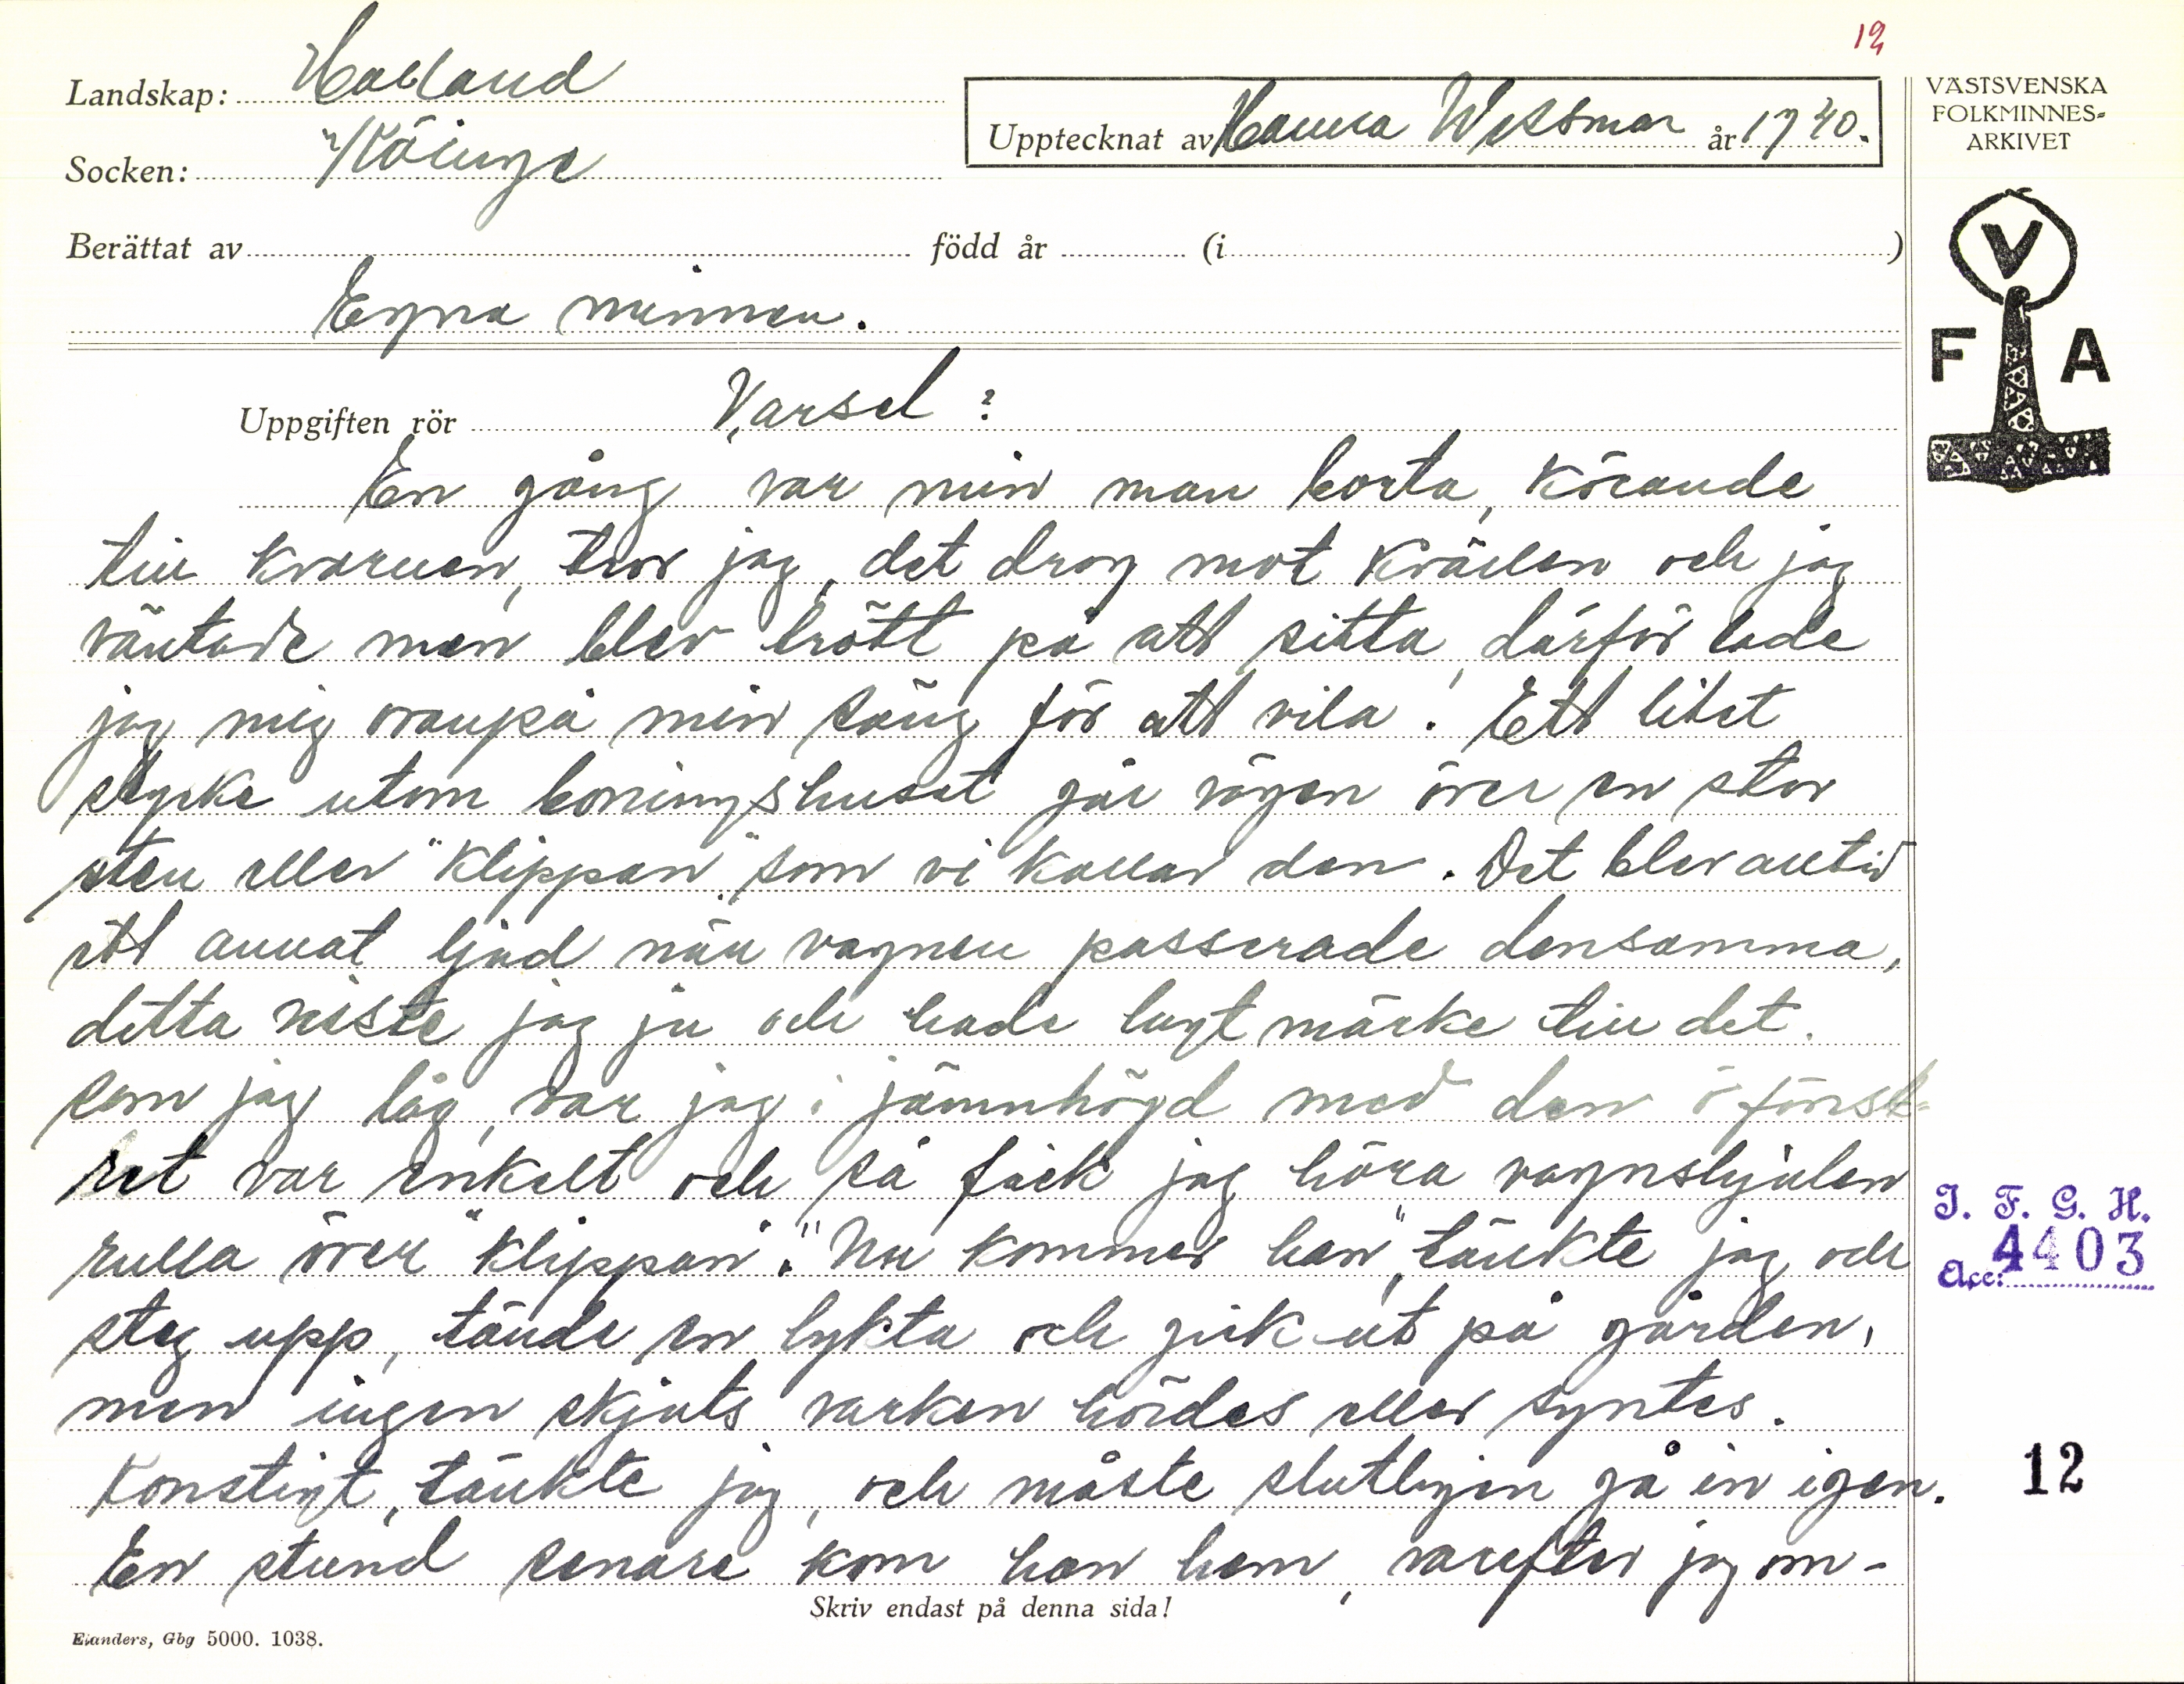 12
Landskap: Halland
Upptecknat av Hanna Wessmar år 1940.
VÄSTSVENSKA
FOLKMINNES=
ARKIVET
Socken: Köinge
Berättat av född år (i )
Egna minnen.
V
F A
Uppgiften rör Varsel?
En gång var min man borta, körande
till kvarnen, tror jag, det drog mot kvällen och jag
väntade men blev trött på att sitta, därför lade
jag mig ovanpå min säng för att vila. Ett litet
stycke utom boningshuset går vägen över en stor
sten eller "Klippan" som vi kallar den. Det blev alltid
ett annat ljud när vagnen passerade densamma,
detta visste jag ju och hade lagt märke till det.
som jag låg, var jag i jämnhöjd med den o fönst=
ret var enkelt och så fick jag höra vagnshjulen
rulla över "Klippan". "Nu kommer han", tänkte jag och
steg upp, tände en lykta och gick ut på gården,
men ingen skjuts varken hördes eller syntes.
Konstigt, tänkte jag, och måste slutligen gå in igen.
En stund senare kom han hem, varefter jag om-
I. F. G. H.
Acc: 4403
12
Skriv endast på denna sida!
Elanders, Gbg 5000. 1038.